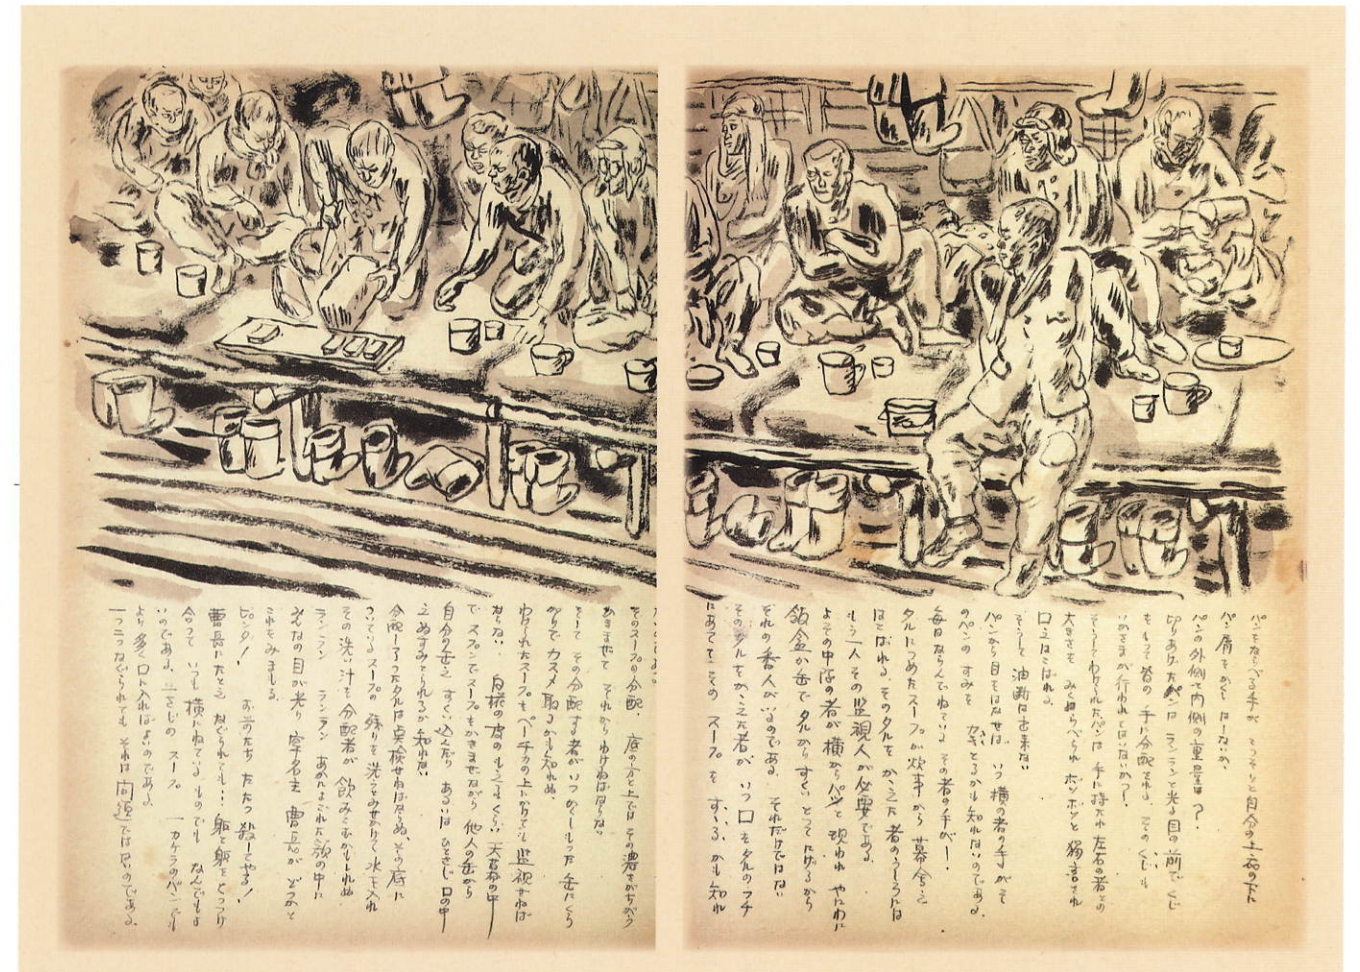 パンをならべる手が そっそりと自分の上衣の下に
パン屑をかくしはしないか。
パンの外側で内側の重量は？。
切りあげたパンは ランランと光る目の前で くじ
をもって皆の手に分配される。そのくじも
いかさまが行われてはいないかっ！。
そうしてわけられたパンは 手に持たれ左右の者との
大きさを みくらべられ ボソボソと 独言され
口えはこばれる。
そうして 油断は出来ない
パンから目をはなせば いつ横の者の手がのびて
そのパンの すみを かぎとるかも知れないのである。
毎日ならんでねている その者の手が！。
タルにつめたスープが炊事から 幕舎え
はこばれる。そのタルを かつえた者のうしろには
もう一人 その監視人が必要である。
よその中隊の者が横からパッと現われ やにわに
飯盒か缶で タルからすくいとってにげるから
それの番人がいるのである。それだけではない
そのタルをかつえた者が、いつ口をタルのフチ
にあててそのスープをすゝるかも知れ
そのスープの分配、底の方と上ではその濃さがちがう
かきまぜて それからわけねばならない
そして その分配する者がいつかくしもった缶にくら
がりでカスメ取るかも知れぬ。
わけられたスープをペーチカの上にかけても監視せねば
ならない、白樺の皮のもえるくらい天幕の中
で スプンでスープをかきまぜながら 他人の缶から
自分の缶え すくい込んだり あるいは ひとさじ口の中
え ぬすみとられるか知れない
分配し了ったタルは点検せねばならぬ、その底に
ついているスープの残りを洗ってみせかけて 水を入れ
その洗い汁を 分配者が 飲みこむかもしれぬ
ランラン ランラン あかんよごれた顔の中に
みんなの目が光り 牢名主、曹長がじっと
これをみまもる。
ビンタ！ お前のたち たたっ殺してやる！
曹長にたとえ なぐられても…躯と躯をとっつけ
合って いつも横にねているものでも なんでもよ
いのである。一さじのスープ 一カケラのパンでも
より多く口に入ればよいのである。
一つ二つなぐられても それは問題ではないのである。